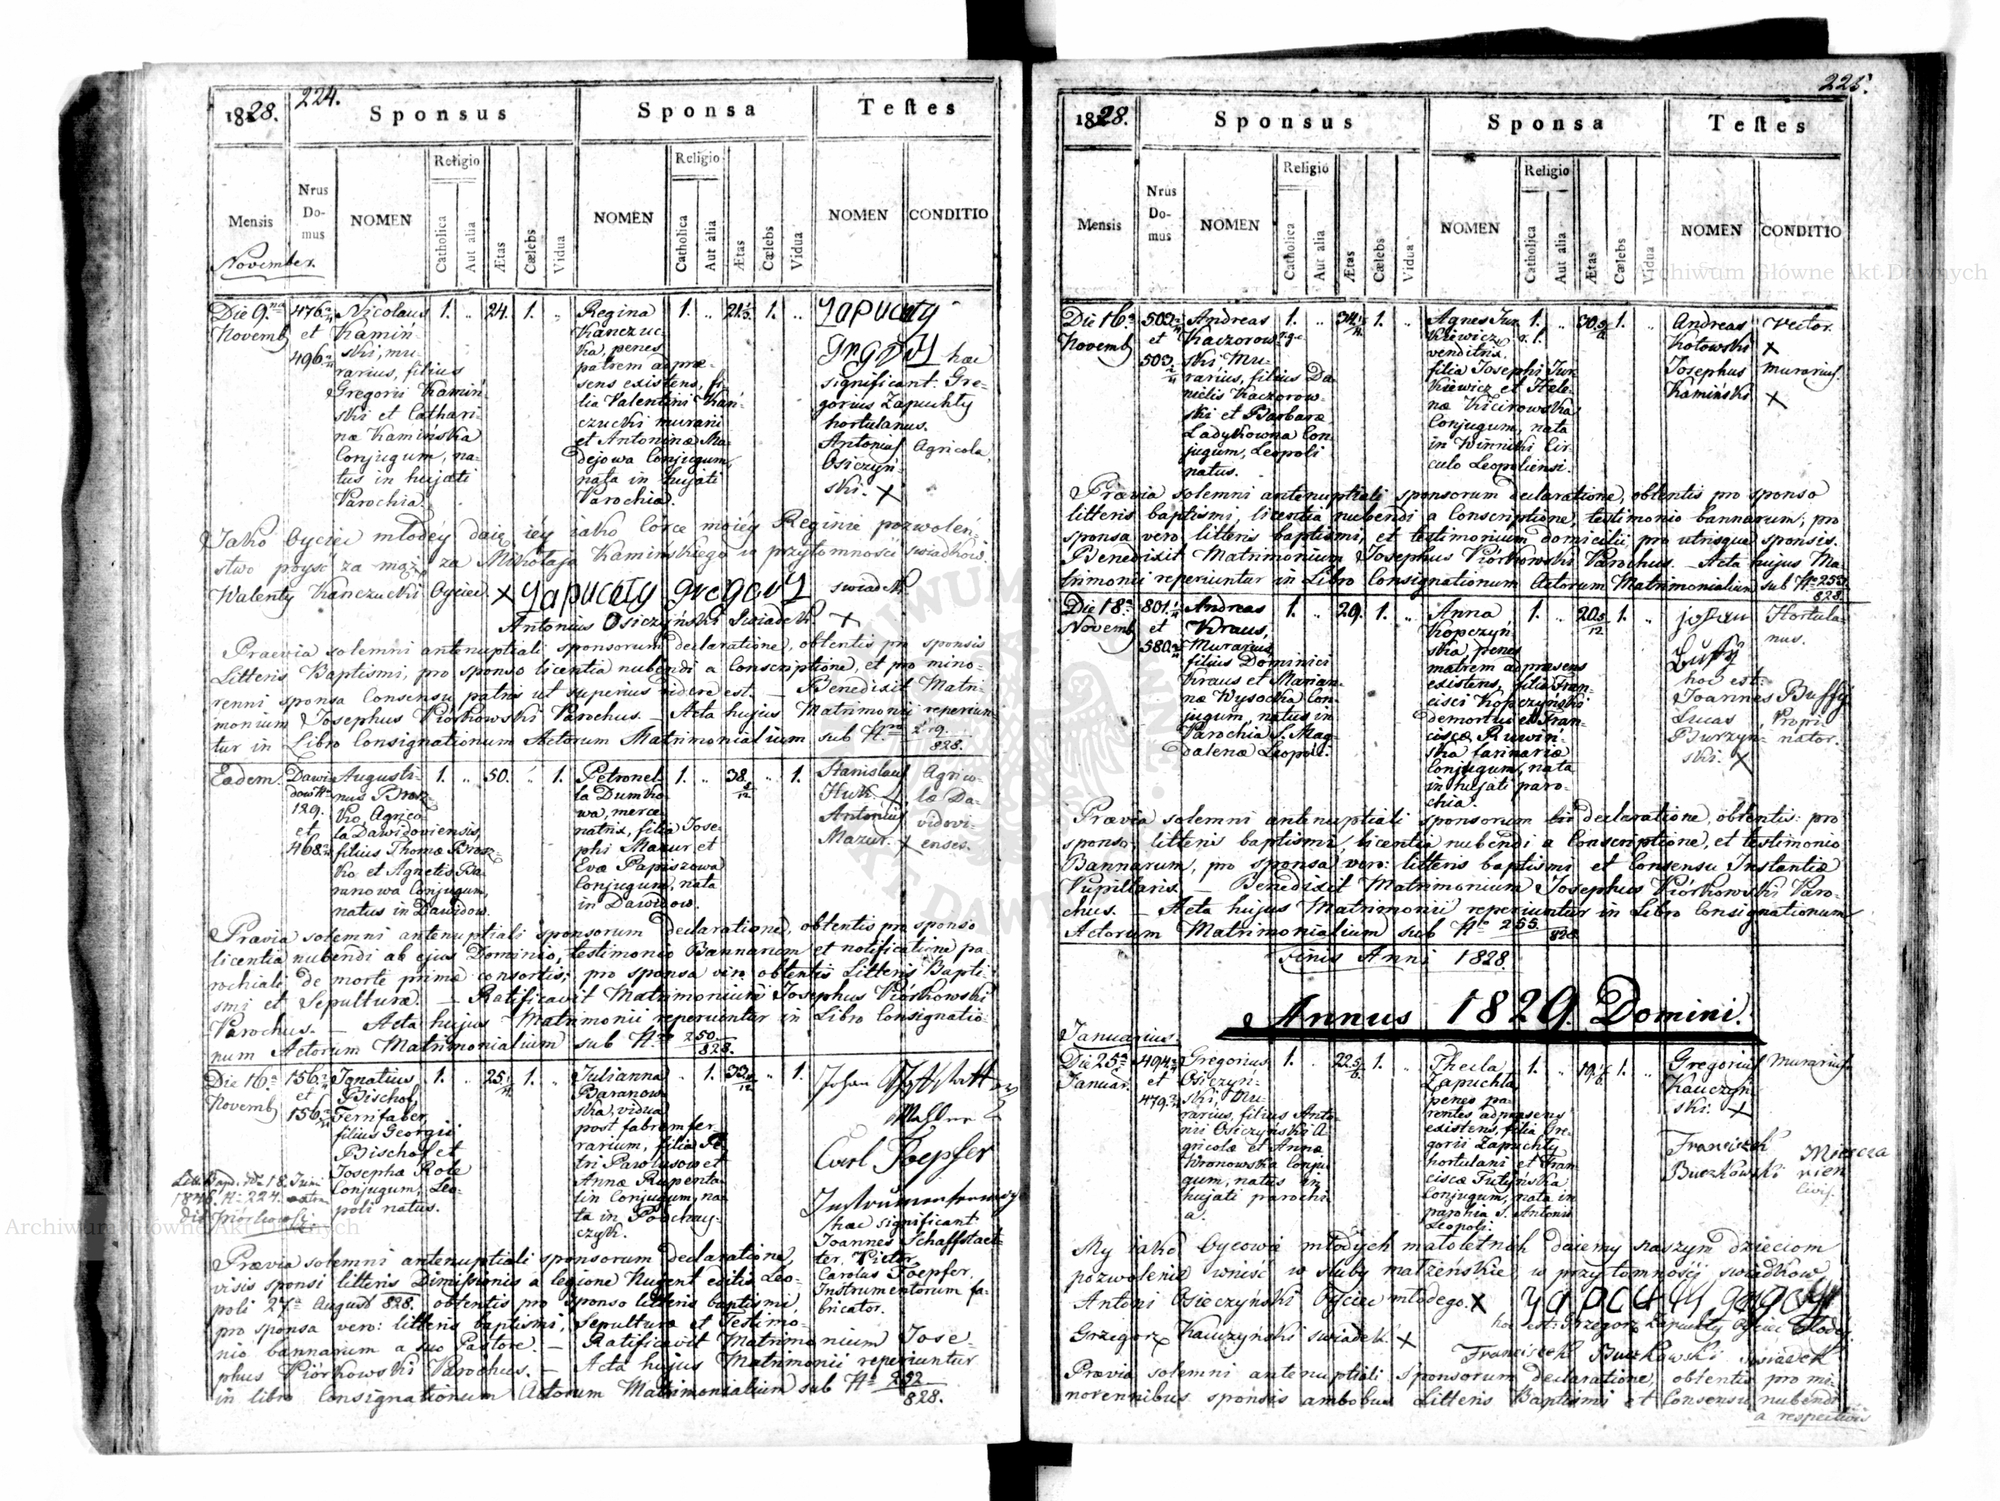 224.
1828. Sponsus Sponsa Teſtes
Religio Religio
Nrus Domus
Mensis NOMEN Catholica Aut alia Ætas Cælebs Vidua NOMEN Catholica Aut alia Ætas Cælebs Vidua NOMEN CONDITIO
November.
Die 9.na
Novemb
476
et
496
Nicolaus
Kamiń-
ski, mu-
rarius, filius
Gregorii Kamiń-
ski et Cathari-
næ Kamińska
Conjugum, na-
tus in hujati
Parochia.
1. „ 24. 1. „
Regina
Kanczuc-
ka, penes
patrem ad præ-
sens existens, fi-
lia Valentini Kań-
czucki murarii
et Antoninæ Ma-
dejowa Conjugum,
nata in hujati
Parochia.
1. „ 21 1. „
Zapuchty
hac
significant: Gre-
gorius Zapuchty
hortulanus.
Antonius Agricola.
Osiczyń-
ski. X
Jako Oyciec młodéy daię iéy iako Córce moiéy Reginie pozwoleń-
stwo poyść za mąż za Mikołaja Kamińskiego w przytomności świadków.
Walenty Kanczucki Oyciec X Zapuchty gregory świadek
Antonius Osiczyński Swiadek. X
Praevia solemni antenuptiali sponsorum declaratione, obtentis pro sponsis
Litteris Baptismi, pro sponso licentia nubendi a Conscriptione, et pro mino-
renni sponsa Consensu patris ut superius videre est. — Benedixit Matri-
monium Josephus Piórkowski Parochus. — Acta hujus Matrimonii reperiun-
tur in Libro Consignationum Actorum Matrimonialium sub Nro
828.
Eadem.
Dawi-
dow Nro
129.
et
468
Augusti-
nus Broz-
ko, Agrico-
la Dawidoviensis,
filius Thomæ Broz-
ko et Agnetis Ba-
ranowa Conjugum,
natus in Dawidow.
1. „ 50. „ 1.
Petronel-
la Dumko-
wa, merce-
natrix, filia Jose-
phi Mazur et
Evæ Papiszowa
Conjugum, nata
in Dawidow.
1. „ 38 „ 1.
Stanislaus Agrico-
Huk. læ Da-
Antonius vidovi-
Mazur. X enses.
Prævia solemni antenuptiali sponsorum declaratione, obtentis pro sponso
licentia nubendi ab ejus Dominio, testimonio Bannorum et notificatione pa-
rochiali de morte primæ consortis; pro sponsa vero obtentis Litteris Bapti-
smi et Sepulturæ. — Ratificavit Matrimonium Josephus Piórkowski
Parochus. — Acta hujus Matrimonii reperiuntur in Libro Consignatio-
num Actorum Matrimonialium sub Nro 250
828.
Die 16
Novemb
156
et
156
Ignatius
Bischof,
Ferrifaber,
filius Georgii
Bischof et
Josepha Role
Conjugum, Leo-
poli natus.
1. „ 25 1. „
Julianna
Baranow-
ska, vidua
post fabrum fer-
rarium, filia Pe-
tri Parolusow et
Annæ Rupenta-
lin Conjugum, na-
ta in Podhay-
czyk.
„ 1. 33 „ 1.
Johan
Mahler
Carl Toepfer
Instrumentenmach
hac significant
Joannes Schaffstaet-
ter, Pictor.
Carolus Toepfer,
Instrumentorum fa-
bricator.
Prævia solemni antenuptiali sponsorum declaratione,
visis sponsi litteris Dimissionis a legione Nugent editis Leo-
poli 27a August 828, obtentis pro sponso litteris baptismi,
pro sponsa vero: litteris baptismi, Sepulturæ et Testimo-
nio bannorum a suo Pastore. — Ratificavit Matrimonium Jose-
phus Piórkowski Parochus. — Acta hujus Matrimonii reperiuntur
in libro Consignationum Actorum Matrimonialium sub No 252
828.
225.
1828. Sponsus Sponsa Teſtes
Religio Religio
Nrus Domus
Mensis NOMEN Catholica Aut alia Ætas Cælebs Vidua NOMEN Catholica Aut alia Ætas Cælebs Vidua NOMEN CONDITIO
Die 16
Novemb
503
et
503
Andreas
Kaczorow-
ski Mu-
rarius, filius Da-
nielis Kaczorow-
ski et Barbaræ
Ladykowna Con-
jugum, Leopoli
natus.
1. „ 34 1. „
Agnes Jur-
kiewicz
venditrix
filia Josephi Jur-
kiewicz et Hele-
næ Kicirowska
Conjugum, nata
in Winniki Cir-
culo Leopoliensi.
1. „ 30 1. „
Andreas Vector.
Kotowski X
Josephus murarius.
Kamiński X
Prævia solemni antenuptiali sponsorum declaratione, obtentis pro sponso
litteris baptismi, licentia nubendi a Conscriptione, testimonio bannorum; pro
sponsa vero litteris baptismi, et testimonium domicilii pro utrisque sponsis.
Benedixit Matrimonium Josephus Piórkowski Parochus. — Acta hujus Ma-
trimonii reperiuntur in Libro Consignationum Actorum Matrimonialium sub No 253
828.
Die 18
Novemb
801
et
580
Andreas
Kraus,
Murarius,
filius Dominici
Kraus et Marian-
næ Wysocka Con-
jugum, natus in
Parochia S. Mag-
dalenæ Leopoli.
1. „ 29. 1. „
Anna
Kopczyń-
ska, penes
matrem ad præsens
existens, filia Fran-
cisci Kopczyński
demortui et Fran-
ciscæ Ruwiń-
ska farinariæ
Conjugum, nata
in hujati paro-
chia.
1. „ 20 5/12 1. „
johan Hortula-
Buffy nus.
hoc est:
Joannes Buffy
Lucas Propri-
Burzyń- nator.
ski. X
Prævia solemni antenuptiali sponsorum declaratione, obtentis: pro
sponso: litteris baptismi, licentia nubendi a Conscriptione, et testimonio
Bannorum, pro sponsa vero: litteris baptismi et Consensu Instantiæ
Pupillaris. — Benedixit Matrimonium Josephus Piórkowski Paro-
chus. — Acta hujus Matrimonii reperiuntur in Libro Consignationum
Actorum Matrimonialium sub No 255.
828
Finis Anni 1828.
Annus 1829. Domini.
Januarius.
Die 25
Januar.
494
et
479
Gregorius
Osiczyn-
ski, Mu-
rarius, filius Anto-
nii Osiczyński A-
gricolæ et Annæ
Wronowska Conju-
gum, natus in
hujati parochi-
a.
1. „ 22 1. „
Thecla
Zapuchta,
penes pa-
rentes ad præsens
existens, filia Gre-
gorii Zapuchty
hortulani et Fran-
ciscæ Tutyńska
Conjugum, nata in
parohia S. Antonii
Leopoli.
1. „ 19 1. „
Gregorius Murarius.
Kauczyń-
ski. X
Franciszek
Buczkowski
civis.
My jako Oycowie młodych małoletnich daiemy naszym dzieciom
pozwolenie wniść w śluby małżeńskie w przytomności świadków
Antoni Osieczyński Oyciec młodego. X
hoc est: Grzegorz Zapuchty Oyciec Młodey.
Grzegorz Kauczyński świadek. X
Franciszek Buczkowski swiadek
Prævia solemni antenuptiali sponsorum declaratione, obtentis pro mi-
norennibus sponsis ambobus Litteris Baptismi et Consensu nubendi
a respectivis
Archiwum Główne Akt Dawnych
Archiwum Główne Akt Dawnych